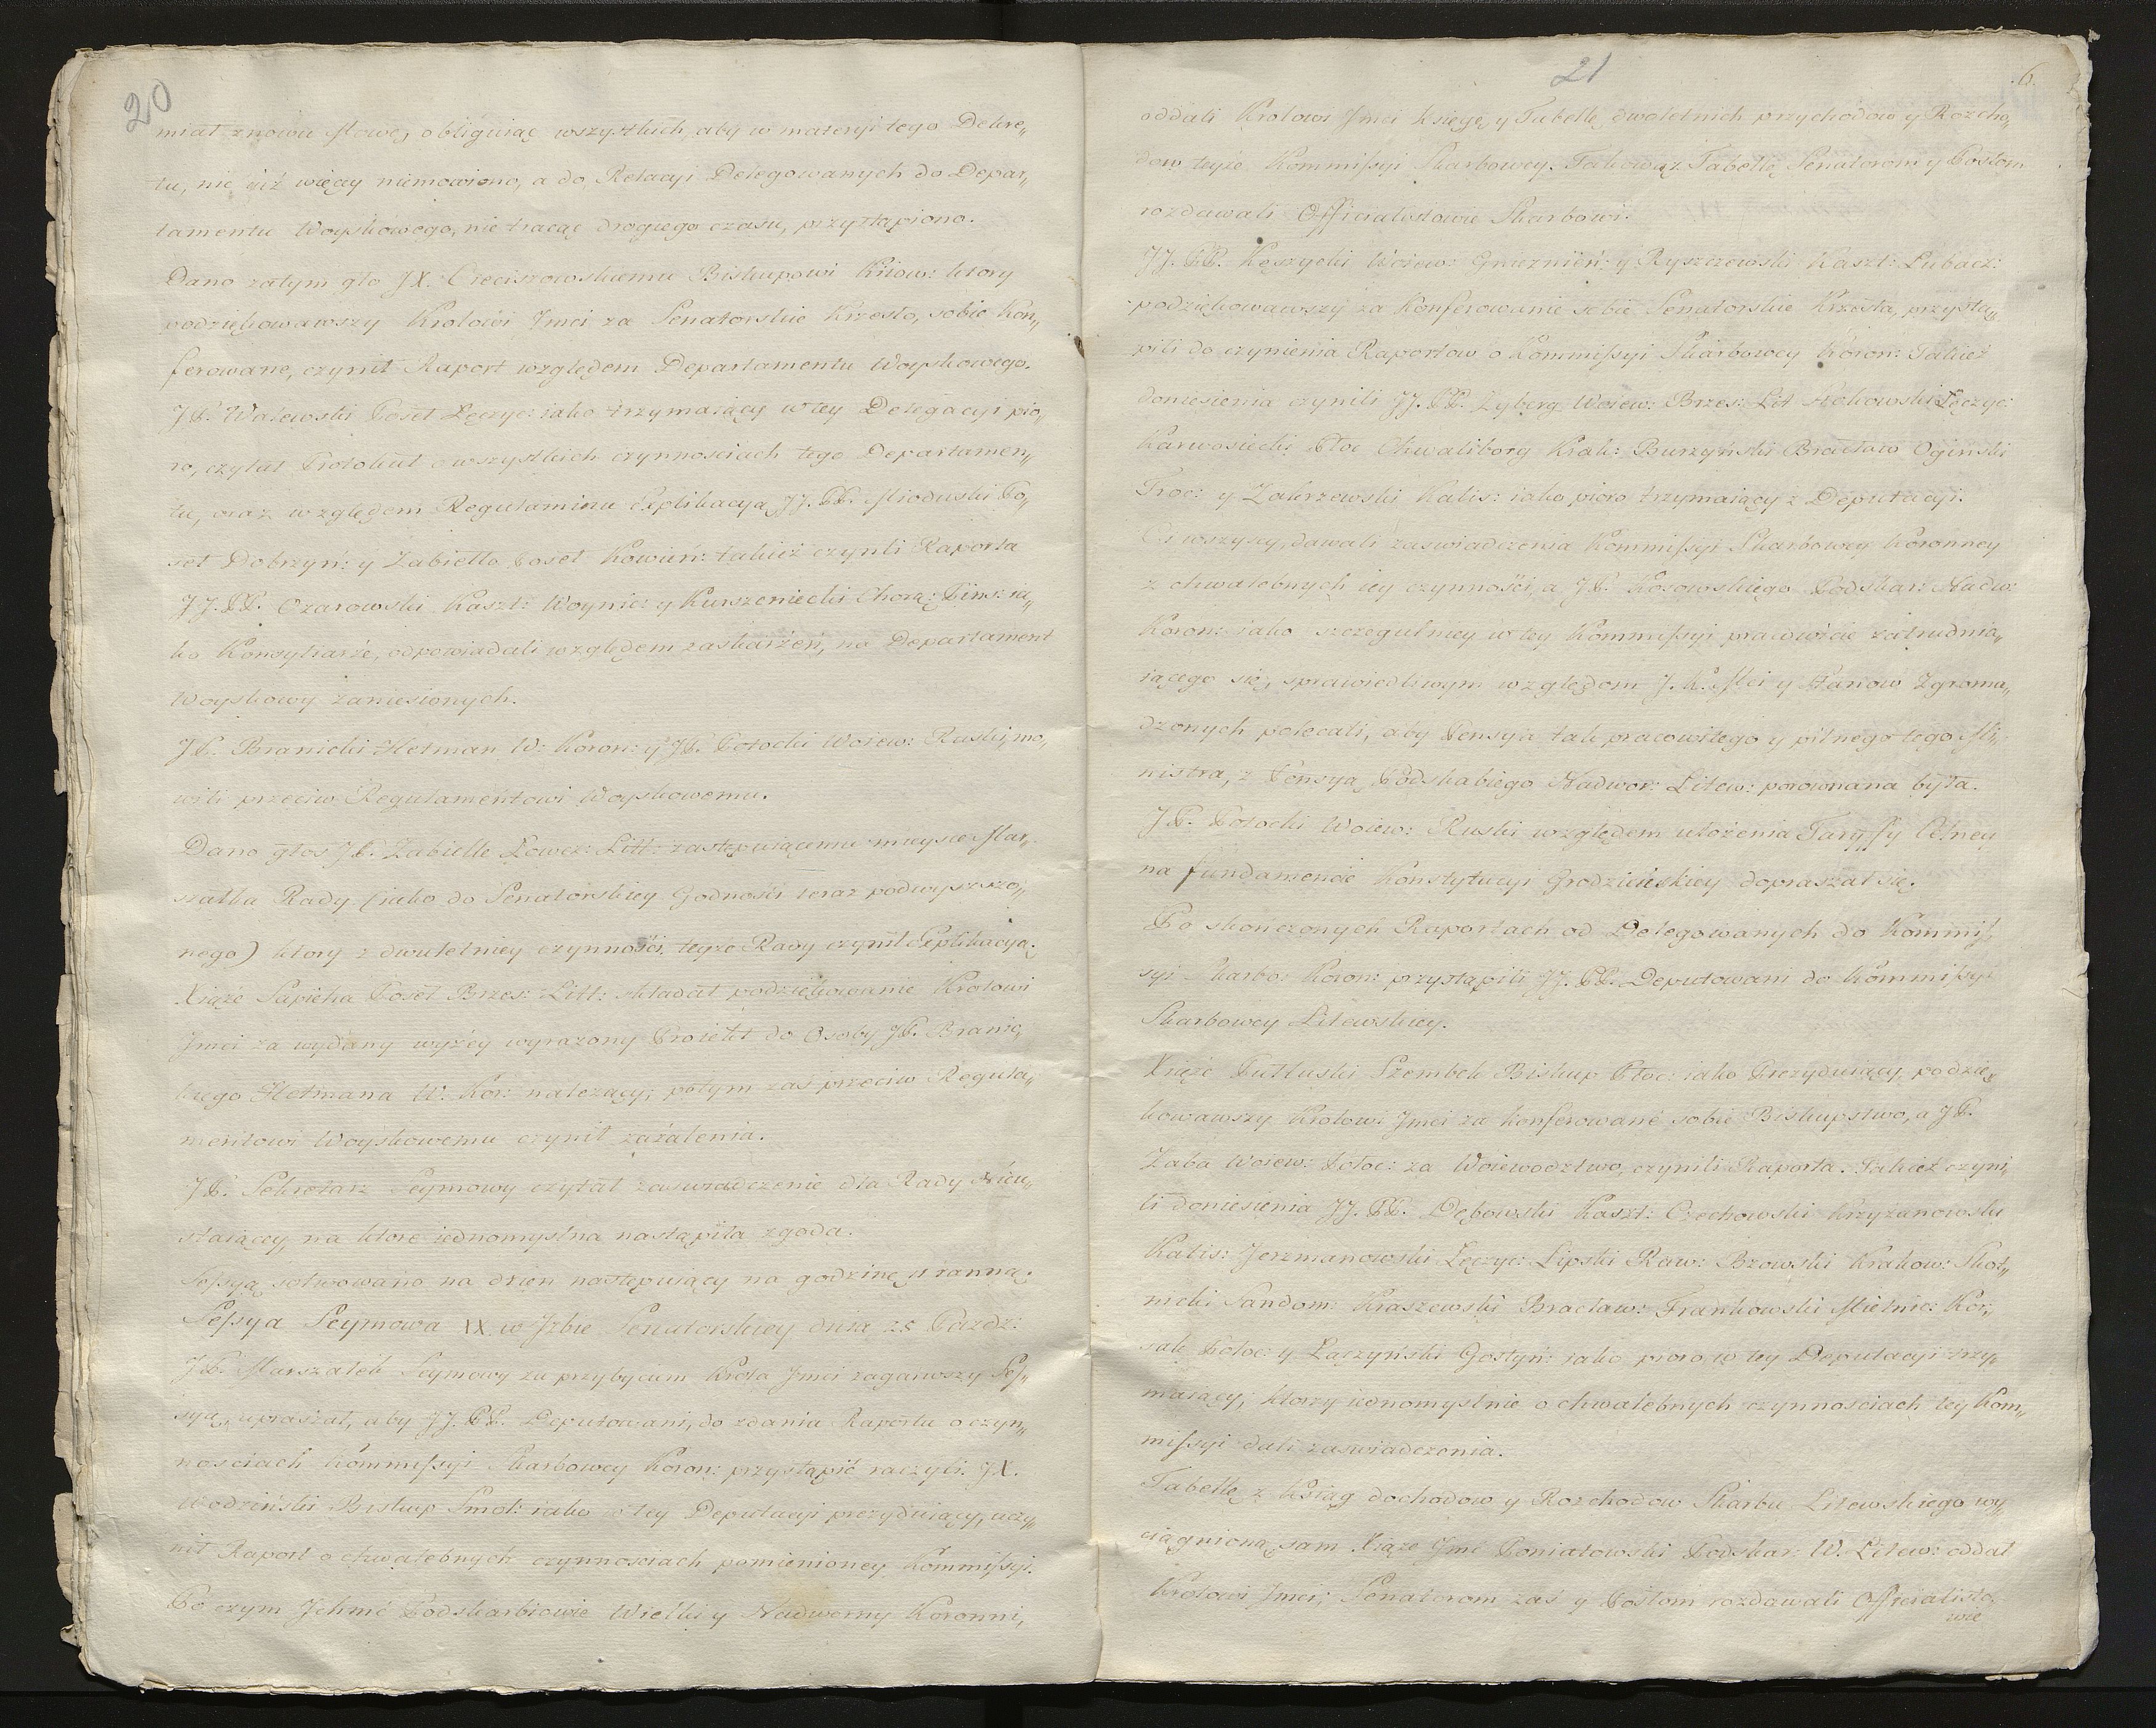 20
miał znowu Mowę, obliguiąc wszystkich, aby w materyi tego Dekre„
tu, nic iuż więcy niemowiono, a do Relacyi Delegowanych do Depar„
tamentu Woyskowego, nie tracąc drogiego czasu, przystąpiono.
Dano zatym głos JX. Cieciszowskiemu Biskupowi Kiiow: ktory
podziękowawszy Krolowi Jmci za Senatorskie Krzesło, sobie Kon„
ferowane, czynił Raport względem Departamentu Woyskowego.
JP. Walewski Poseł Łęczyc: iako trzymaiący w tey Delegacyi pio„
ro, czytał Protokuł o wszystkich czynnosciach tego Departamen„
tu, oraz względem Regulaminu Explikacyą, JJ. PP. Mioduski Po„
seł Dobrzyń: y Zabiełło Poseł Kowień: takież czynili Raporta
JJ. PP. Ozarowski Kaszt: Woynic: y Kurzeniecki Chorą: Pins: ia„
ko Konsyliarze, odpowiadali względem zaskarżeń, na Departament
Woyskowy zaniesionych.
JP. Branicki Hetman W: Koron: y JP. Potocki Woiew: Ruski, mo„
wili przeciw Regulamentowi Woyskowemu.
Dano głos JP. Zabielle Łowcz: Litt: zastępuiącemu mieysce Mar„
szałka Rady (iako do Senatorskiey Godności teraz podwyższzo„
nego) ktory z dwuletniey czynności, teyże Rady czynił Explikacyą.
Xiąże Sapieha Poseł Brzes: Litt: składał podziękowanie Krolowi
Jmci za wydany wyżey wyrazony Proiekt do Osoby JP. Branic„
kiego Hetmana W. Kor: należący; potym zaś przeciw Regula„
mentowi Woyskowemu czynił zażalenia.
JP. Sekretarz Seymowy czytał zaswiadczenie dla Rady Nieu„
staiącey, na ktore iednomyslna nastąpiła zgoda.
Sessyą solwowano na dzien następuiący na godzinę 11 ranną.
Sessya Seymowa IX w Izbie Senatorskiey dnia 25 Pazdz:
JP. Marszałek Seymowy za przybyciem Krola Jmci zagaiwszy Ses„
syą, upraszał, aby JJ. PP. Deputowani, do zdania Raportu o czyn„
nosciach Kommissyi Skarbowey Koron: przystąpić raczyli. JX.
Wodziński Biskup Smol: iako w tey Deputacyi prezyduiący, uczy„
nił Raport o chwalebnych czynnosciach pomienioney Kommissyi.
Po czym Ichmć Podskarbiowie Wielki y Nadworny Koronni,
21
6.
oddali Krolowi Jmci Księgę, y Tabellę dwoletnich przychodow y Rozcho„
dow teyże Kommissyi Skarbowey. Takowąż Tabellę Senatorom y Posłom
rozdawali Officialistowie Skarbowi.
JJ. PP. Kęszycki Woiew: Gnieznień: y Ryszczewski Kaszt: Lubacz:
podziękowawszy za Konferowanie sobie Senatorskie Krzesła, przystą„
pili do czynienia Raportow o Kommissyi Skarbowey Koron: Takież
doniesienia czynili JJ. PP. Zyberg Woiew: Brzes: Lit Stokowski Łęczyc:
Karwosiecki Płoc Chwalibog Krak: Burzyński Bracław Oginski
Troc: y Zakrzewski Kalis: iako pioro trzymaiący z Deputacyi.
Ci wszyscy, dawali zaswiadczenia Kommissyi Skarbowey Koronney
z chwalebnych iey czynności, a JP. Kosowskiego Podskar: Nadw:
Koron: iako szczegulniey w tey Kommissyi prawdziwie zatrudnia„
iącego się, sprawiedliwym względom J. K. Mci y Stanow Zgroma„
dzonych polecali, aby Pensya tak pracowitego y pilnego tego Mi„
nistra, z Pensyą Podskabiego Nadwor: Litew: porownana była.
JP. Potocki Woiew: Ruski względem ułożenia Taryffy Celney
na fundamencie Konstytucyi Grodzieńskiey dopraszał się.
Po skończonych Raportach od Delegowanych do Kommis„
syi Skarbo: Koron: przystąpili JJ. PP. Deputowani do Kommissyi
Skarbowey Litewskiey.
Xiąże Pułtuski Szembek Biskup Płoc: iako Prezyduiący, podzię„
kowawszy Krolowi Jmci za konferowane sobie Biskupstwo, a JP.
Zaba Woiew: Połoc: za Woiewodztwo, czynili Raporta. Takież czyni„
li doniesienia JJ. PP. Dębowski Kaszt: Czechowski Krzyżanowski
Kalis: Jerzmanowski Łęczyc: Lipski Raw: Bzowski Krakow: Skot„
nicki Sandom: Kraszewski Bracław: Frankowski Mielnic: Kor„
sak Połoc: y Łączyński Gostyń: iako pioro w tey Deputacyi trzy„
maiący; ktorzy iednomyslnie o chwalebnych czynnosciach tey Kom„
missyi dali zaswiadczenia.
Tabellę z Ksiąg dochodow y Rozchodow Skarbu Litewskiego wy„
ciągnioną, sam Xiąże Jmć Poniatowski Podskar: W. Litew: oddał
Krolowi Jmci; Senatorom zaś y Posłom rozdawali Officialisto„
wie